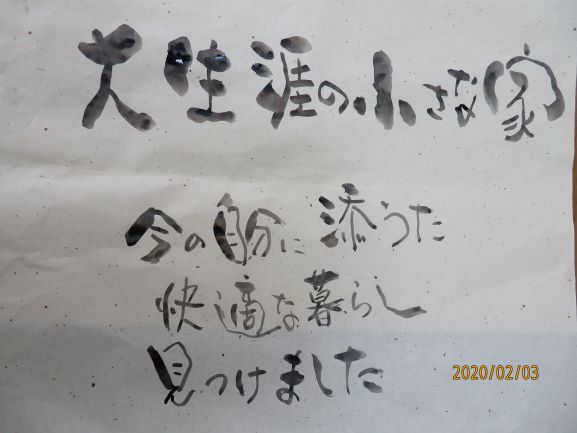 大生涯の小さな家
今の自分に添うた
快適な暮らし
見つけました
2020/02/03